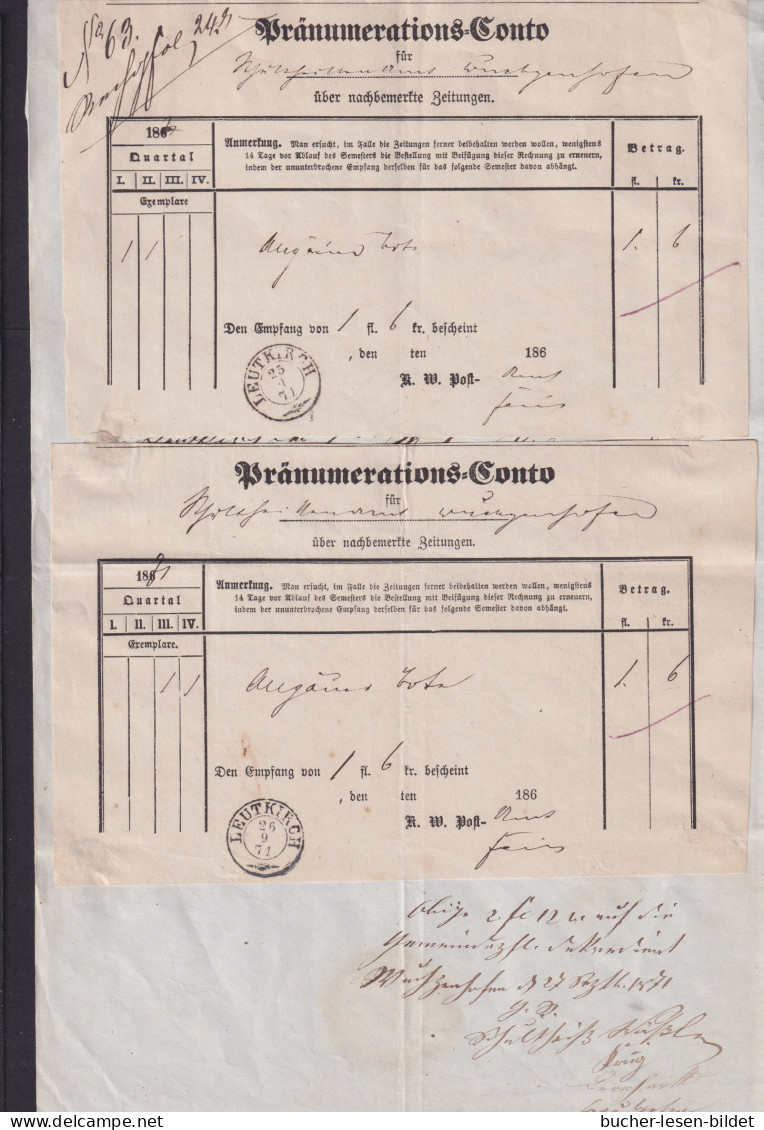 No 63.
24.
Pränumerations-Conto
für
Schultheißenamt Wuchzenhofen
über nachbemerkte Zeitungen.
186
Quartal
I. II. III. IV.
Exemplare
Anmerkung. Man ersucht, im Falle die Zeitungen ferner beibehalten werden wollen, wenigstens
14 Tage vor Ablauf des Semesters die Bestellung mit Beifügung dieser Rechnung zu erneuern,
indem der ununterbrochene Empfang derselben für das folgende Semester davon abhängt.
Betrag.
fl. kr.
1 1 Allgäuer Bote 1. 6
Den Empfang von 1 fl. 6 kr. bescheint
, den ten 186
K. W. Post- Amt
LEUTKIRCH
25
71
Pränumerations-Conto
für
Schultheißenamt Wuchzenhofen
über nachbemerkte Zeitungen.
1871
Quartal
I. II. III. IV.
Exemplare.
Anmerkung. Man ersucht, im Falle die Zeitungen ferner beibehalten werden wollen, wenigstens
14 Tage vor Ablauf des Semesters die Bestellung mit Beifügung dieser Rechnung zu erneuern,
indem der ununterbrochene Empfang derselben für das folgende Semester davon abhängt.
Betrag.
fl. kr.
1 1 Allgäuer Bote 1. 6
Den Empfang von 1 fl. 6 kr. bescheint
, den ten 186
K. W. Post- Amt
LEUTKIRCH
26
9
71
Obige 2 fl 12 kr auf die
Gemeindepfl. dekretiert
Wuchzenhofen d 27 Septb. 1871
G. R.
Schultheiß
bucher-lesen-bildet.com